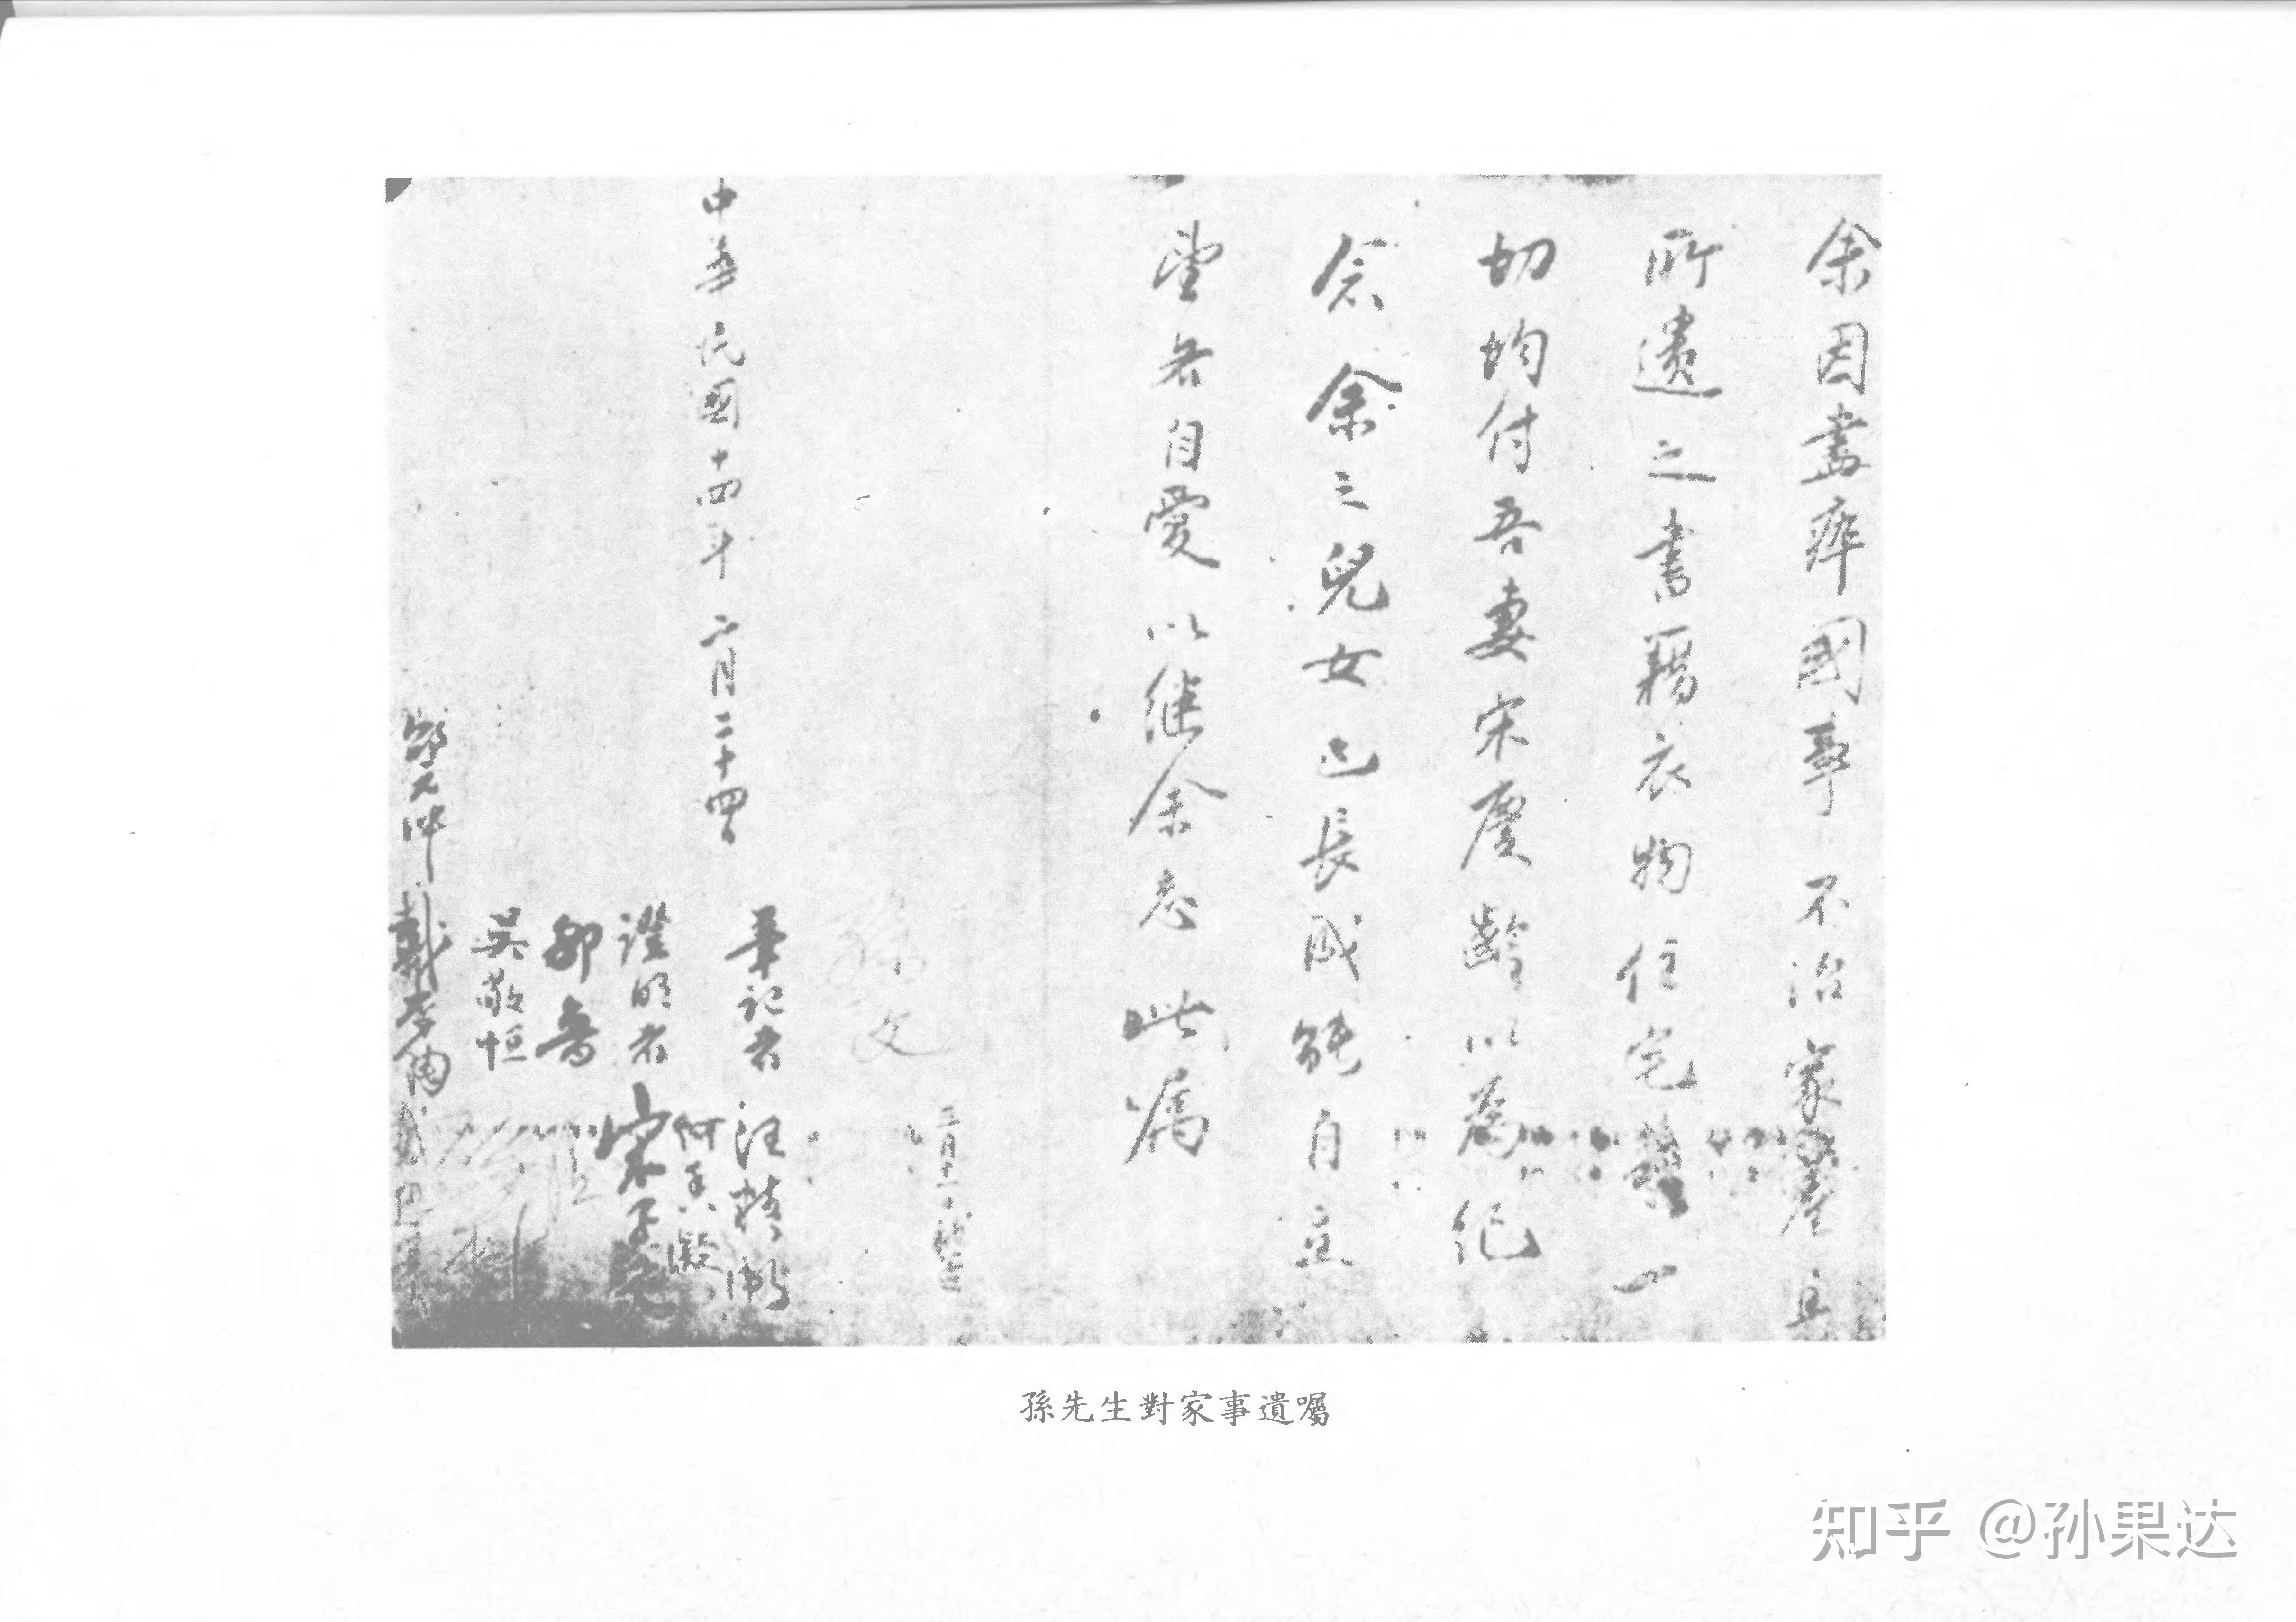 余因盡瘁國事不治家產其
所遺之書籍衣物住宅等一
切均付吾妻宋慶齡以為紀
念余之兒女已長成能自立
望各自愛以継余志此嘱
孫文
三月十一日補簽
中華民國十四年二月二十四日
筆記者 汪精衛
何香凝
證明者 宋子文
鄒魯
吳敬恒
邵元冲 戴季陶
孫先生對家事遺囑
知乎 @孙果达